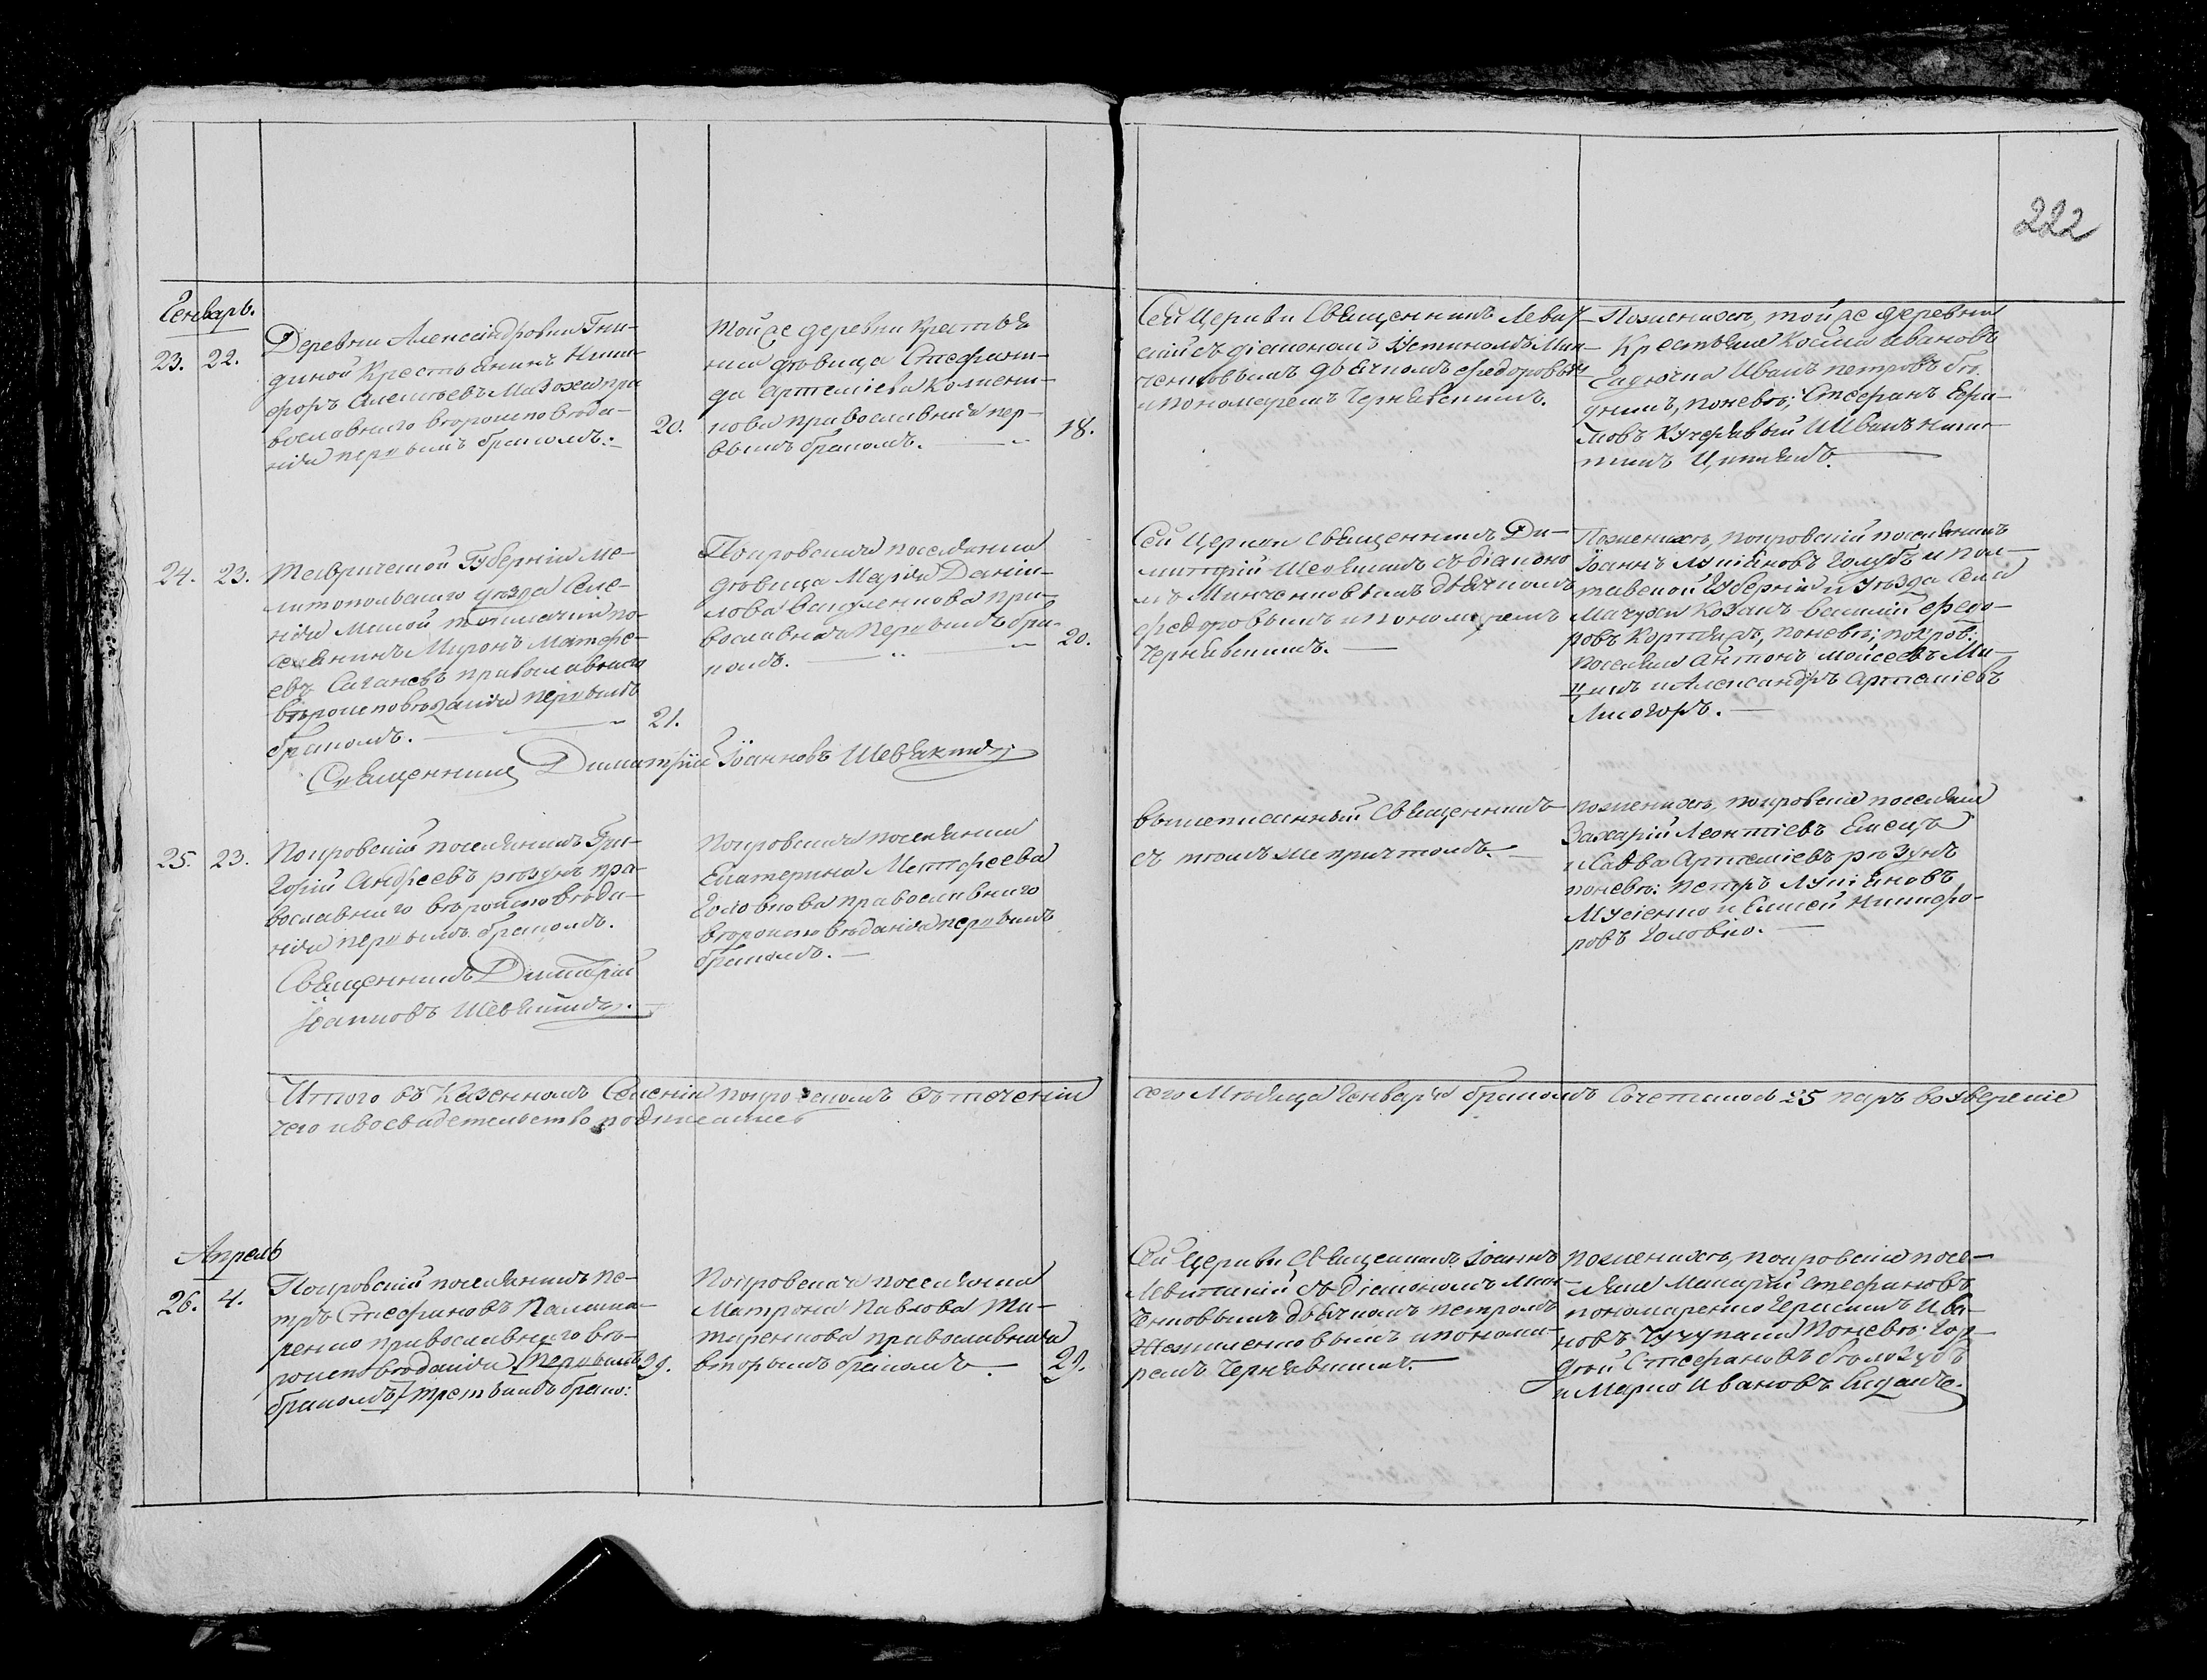 222
Генварь.
23. 22.
Деревни Александровки Гни-
диной Крестьянинъ Ники-
форъ Алексѣевъ Мазоха пра
вославнаго вѣроисповѣда-
нія первымъ бракомъ.
20.
Той же деревни крестья
нка дѣвица Стефани-
да Артеміева
нова православная пер-
вымъ бракомъ.
18.
Сей Церкви Священникъ Левит-
скій съ діакономъ Устиномъ Мин-
ченковымъ дьячкомъ Федоровым
и пономаремъ Чернявскимъ.
По женихѣ, той же деревни
Крестьяне Косма Ивановъ
Иванъ Петровъ
по невѣстѣ; Стефанъ Ефи-
мовъ Кучерявый и Иванъ Ники-
тинъ
24. 23.
Таврической Губерніи Ме-
литопольскаго уѣзда Селе-
нія Малой Токмачки по-
селянинъ Миронъ Матфе-
евъ Саганевъ православнаго
вѣроисповѣданія первымъ
бракомъ.
21.
Покровская поселянка
дѣвица Марія Даніи-
лова пра-
вославная первымъ бра-
комъ.
20.
Сей Церкви Священникъ Ди-
митрій Шевякинъ съ діаконо
мъ Минченковымъ дьячкомъ
Федоровымъ и пономаремъ
Чернявскимъ.
По женихѣ, покровскій поселянинъ
Іоаннъ Лукіяновъ Голубъ и Пол-
тавской Губерніи и Уѣзда села
Мачухи Козакъ Василій Федо-
ровъ по невѣ; покров.
поселяне Антонъ Мойсеевъ Ми-
и Александръ Артеміевъ
Лисогоръ.
Священникъ Димитрій Іоанновъ Шевякинъ
25. 23.
Покровскій поселянинъ Гри-
горій Андреевъ рѣзунъ пра-
вославнаго вѣроисповѣда-
нія первымъ бракомъ.
Священникъ Димитрій
Іоанновъ Шевякинъ.
Покровская поселянка
Екатерина Матфеева
Головкова православнаго
вѣроисповѣданія первымъ
бракомъ.
вышеписанный Священникъ
съ тѣмъ же причтомъ.
по женихѣ, покровскіе поселяне
Захарій Леонтіевъ Елецъ
и Савва Артеміевъ рѣзунъ
по невѣ: Петръ Лукіяновъ
Мусіенко и Елисей Никифо-
ровъ Головко.
Итого въ Казенномъ Селеніи Покровскомъ въ теченіи
сего Мѣсяца Генваря бракомъ Сочеталось 25 паръ во увѣреніе
чего и во свидѣтельство подписались
Апрель
26. 4.
Покровскій поселянинъ Пе-
тръ Стефановъ Палама-
ренко православнаго вѣ-
роисповѣданія [первымъ
бракомъ] третьимъ брако:
39.
Покровская поселянка
Матрона Павлова Ти-
таренкова православная
вторымъ бракомъ.
29.
Сей Церкви Священникъ Іоаннъ
Левитскій съ діакономъ Мин-
ченковымъ дьячкомъ Петромъ
и понома-
ремъ Чернявскимъ.
По женихѣ, покровскіе посе-
ляне Макарій Стефановъ
пономаренко Герасимъ Ива-
новъ Чучупака По невѣ: Гор-
дѣй Стефановъ бѣлозубъ
и Марко Ивановъ